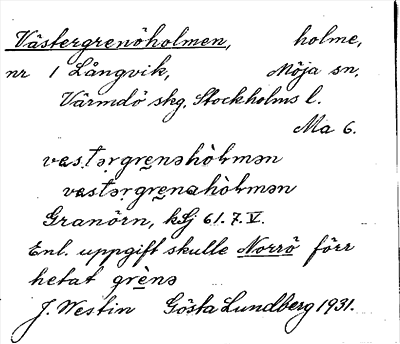 Västergrenöholmen, holme,
nr 1 Långvik, Möja sn,
Värmdö skg, Stockholms l.
Ma 6.
vas̩tər̩gre̱nəhòⱡmən
vastər̩gre̱nahòⱡmən
Granörn, kSj 61.7.V.
Enl. uppgift skulle Norrö förr
hetat grènə
J. Westin Gösta Lundberg 1931.